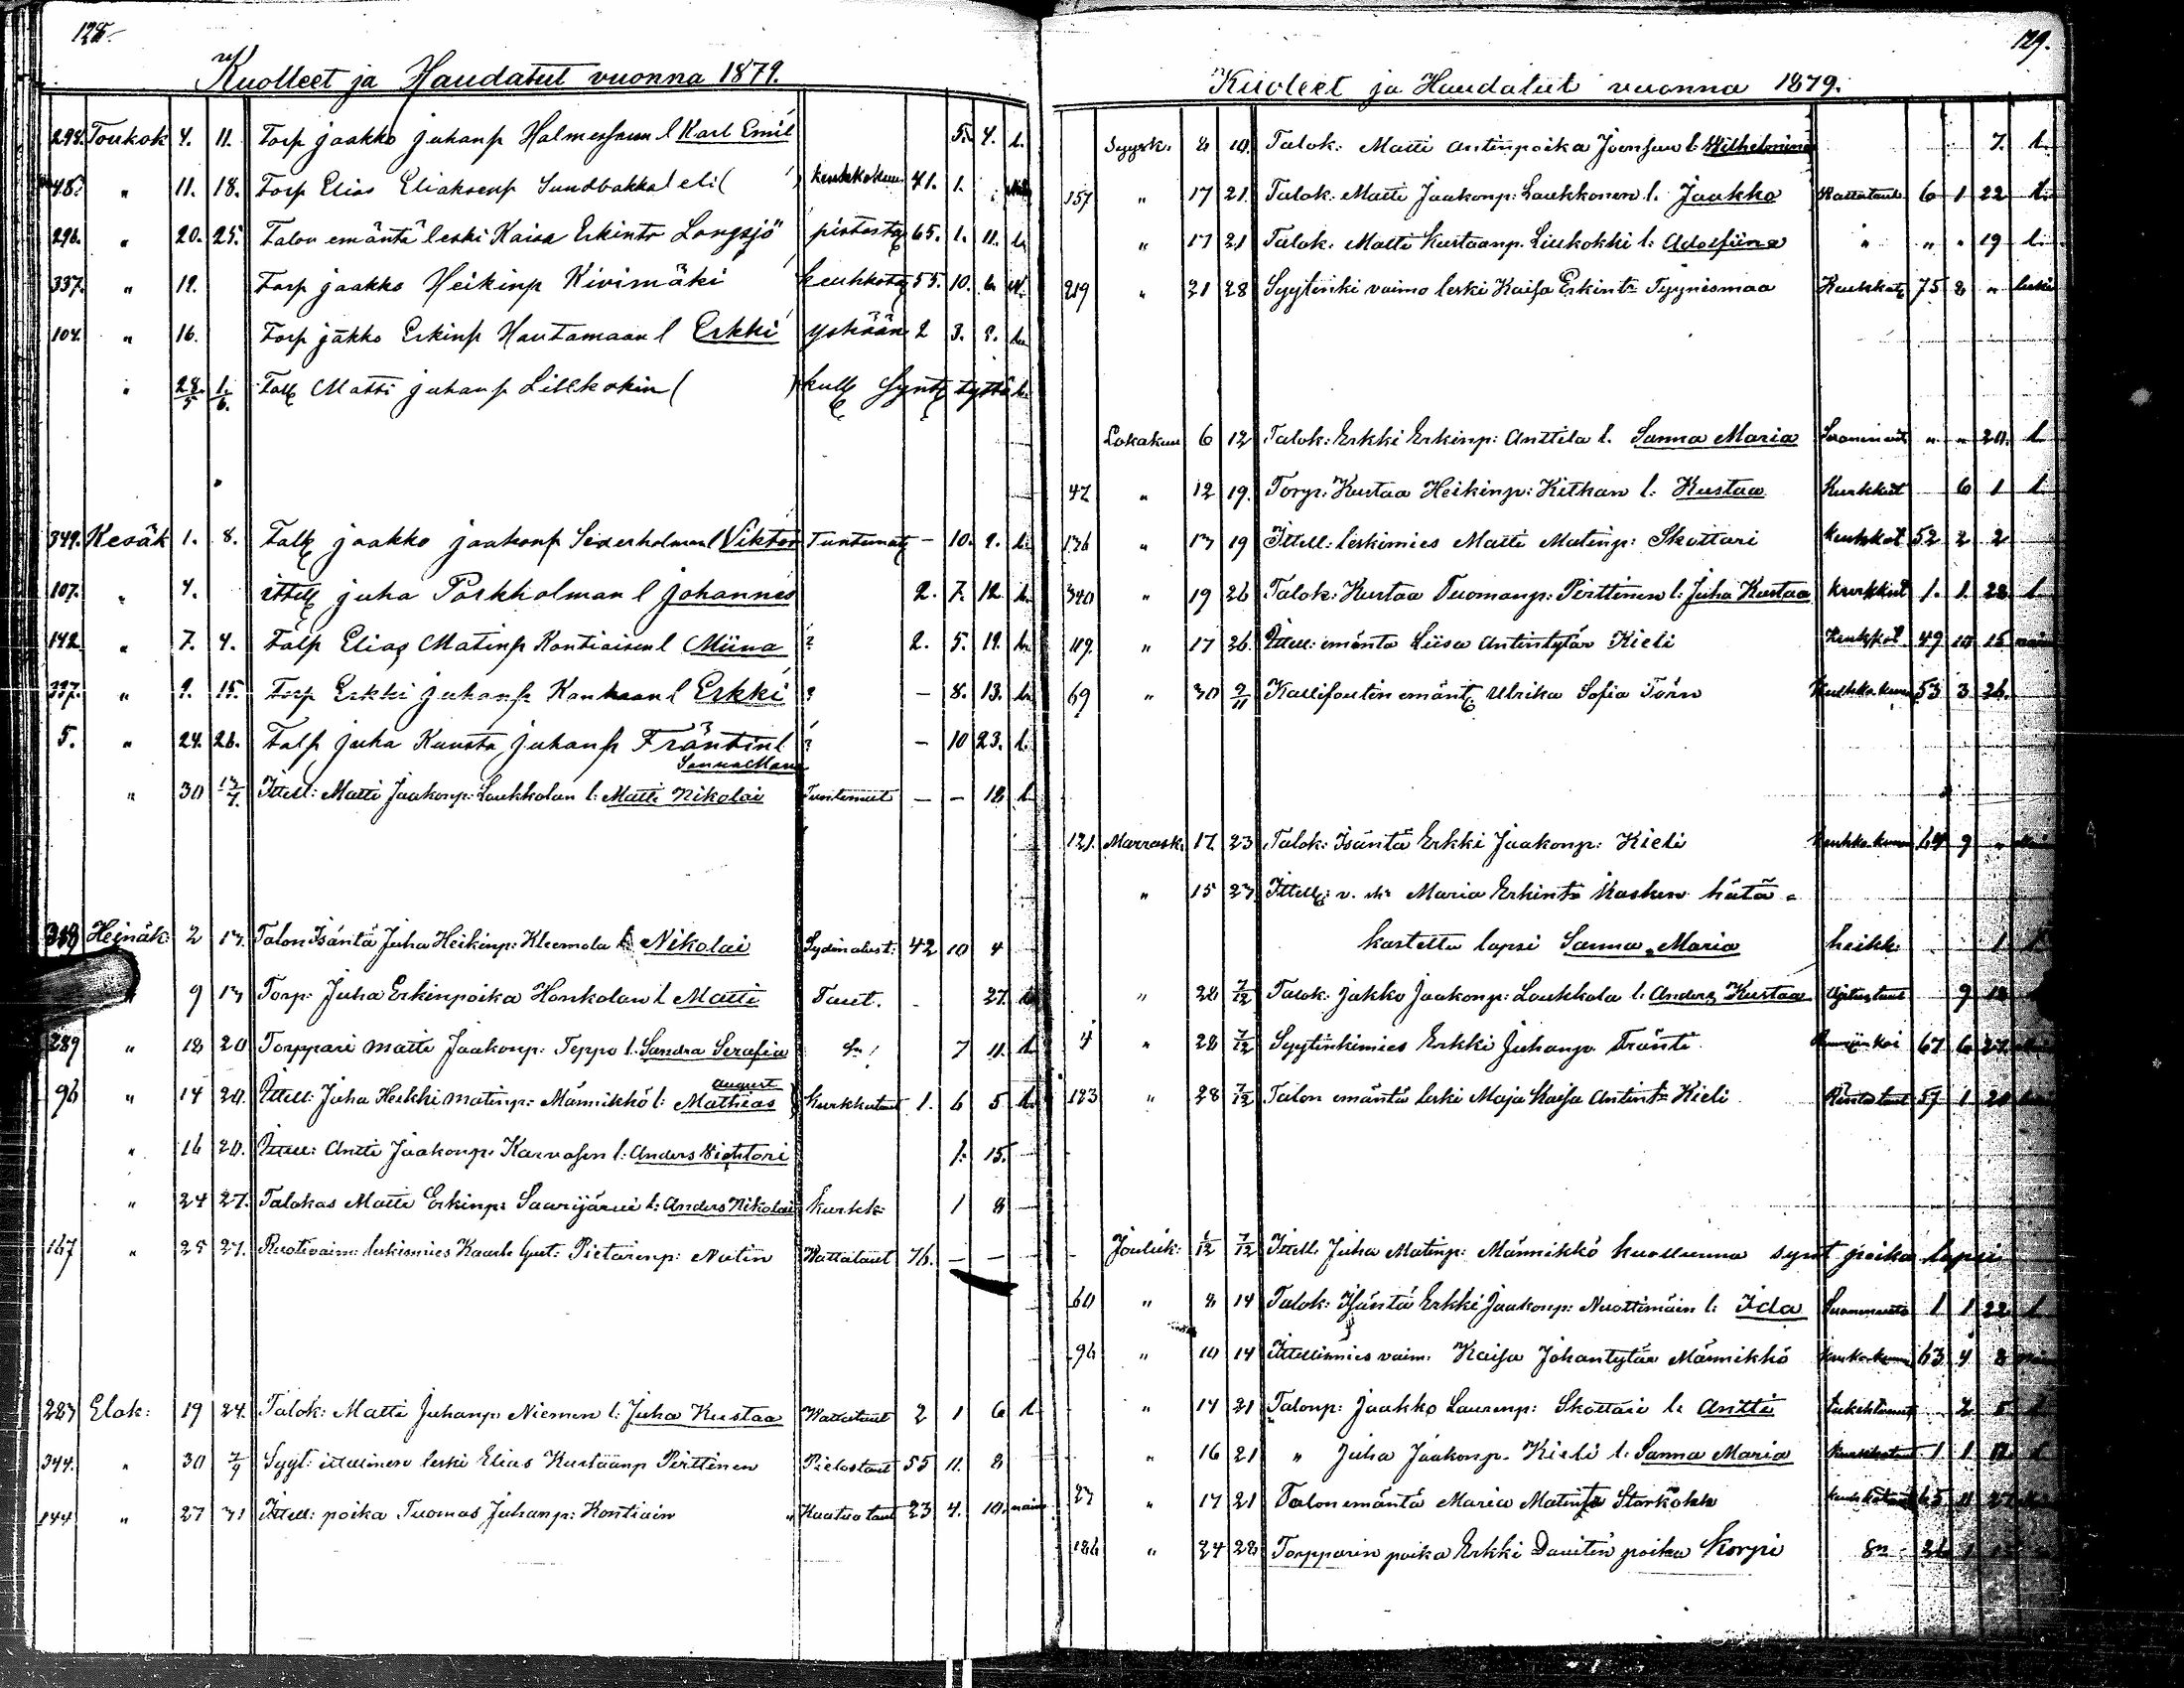 128.
Kuolleet ja Haudatut vuonna 1879.
298. Toukok 4. 11. Torp jaakko juhanp Holmessuun l Karl Emil 5. 4. l.
48. " 11. 18. Torp Elias Eliaksenp Sundbakka l eli ( ) keuhkokuu 41. 1.
296. " 20. 25. Talon emäntä leski Kaisa Erkintr Longsjö pistosta 65. 1. 11. l.
337. " 12. Torp jaakko Heikinp Kivimäki keuhkota 55. 10. 6.
104. " 16. Torp jakko Erkinp Hautamaan l Erkki yskään 2 3. 2. l.
" 28/5 1/6. Tall Matti juhanp Lillkokin ( ) kull synt tyttö l.
349. Kesäk 1. 8. Talk jaakko jaakonp Sederholman l Viktor Tuntemat – 10. 2. l.
107. " 4. ittell juha Porkholman l johannes 2. 7. 12. l.
142. " 7. 4. Talp Elias Matinp Kontiaisen l Miina ? 2. 5. 19. l.
337. " 9. 15. Torp Erkki juhanp Kankaan l Erkki ? – 8. 13. l.
5. " 24. 26. Talp juha Kuusta juhanp Fräntin l ? – 10 23. l.
Sanna Maria
" 30 13/7. Ittell: Matti Jaakonp: Laukkolan l: Matti Nikolai Tuntemat – – 18 l.
319 Heinäk: 2 13. Talon Isäntä Juha Heikinp: Kleemola Nikolai Sydänalust: 42 10 4
" 9 13 Torp: Juha Erkinpoika Honkolan l Matti Taut. 27.
289 " 18 20 Torppari Matti Jaakonp: Teppo l: Sandra Serafia 7 11. l.
96 " 14 20. Ittell: Juha Heikki Matinp: Männikkö l: August Mathias Kurkkutaut 1. 6 5 l.
" 16 20. Ittell: Antti Jaakonp: Karvosen l: Anders Viehtori 1. 15.
" 24 27. Talokas Matti Erkinp: Saarijärvi l: Anders Nikolai kurkk: 1 8
167 " 25 27. Ruotivaim: leskimies Kaarle Gust: Pietarinp: Natin Wattataut 76. – –
283 Elok: 19 24. Talok: Matti Juhanp: Niemen l: Juha Kustaa Wattataut 2 1 6 l.
344. " 30 7/9 Sygt: ittellinen leski Elias Kustäänp Pirttinen Pielostaut 55 11. 8
144 " 27 31 Ittell: poika Tuomas Juhanp: Kontiain Kaatua taut 23 4. 10. naim
129.
Kuolleet ja Haudatut vuonna 1879.
Syysk. 8 10. Talok: Matti Antinpoika Joensuu l: Wilhelmina 7. l.
157 " 17 21. Talok: Matti Jaakonp: Laukkonen l. Jaakko Wattataut 6 1 22 l.
" 17 21 Talok: Matti Kustaanp. Liukokki l: Adolfiina " " " 19 l.
219 " 21 28 Syytinki vaimo leski Kaisa Erkintr Tyynismaa Keuhkot 75 8 " leski
Lokakuu 6 12 Talok: Erkki Erkinp: Anttila l. Sanna Maria " " 20. l.
47 " 12 19. Torp: Kustaa Heikinp: Kitkan l: Kustaa Kurkkut 6 1 l.
136 " 13 19 Ittell: leskimies Matti Matinp: Skottari keuhkot 52 2 2
340 " 19 26 Talok: Kustaa Tuomanp: Pirttinen l: Juha Kustaa kurkkut 1. 1. 28. l
119. " 17 26. Ittell: emäntä Liisa Antintytär Kieli 49 10 15
69 " 30 9/11 Kallifoutin emänt: Ulrika Sofia Törn Keuhkokuum 53 3 26.
121. Marrask. 17. 23. Talok: Isäntä Erkki Jaakonp: Kieli keuhkokuum 64 9 "
" 15 23 Ittell: v. Maria Erkintr Kasken hätä=
kastettu lapsi Sanna Maria heikk: 1
" 28 7/12 Talok: Jakko Jaakonp: Laukkola l: Anders Kustaa Ajetustaut 9
4 " 28 7/12 Syytinkimies Erkki Juhanp Fränti 67 6 27
123 " 28 7/12 Talon emäntä leski Maja Kaisa Antintr Kieli Rintataut 57 1 20
Jouluk: 6/12 7/12 Ittell Juha Matinp: Männikkö kuolluna synt poika lapsi
60 " 8 14 Talok: Isäntä Erkki Jaakonp: Nuottimäin l: Ida 1 1 22 l
96 " 10 14 Ittellinnies vaim: Kaisa Johantytär Männikkö 63 4 8
" 14 21 Talonp: Jaakko Laurinp: Skottari l: Antti tukehtumut 2 5 l
" 16 21 " Juha Jaakonp. Kieli l: Sanna Maria kurkkutaut 1 1 12 l
27 " 17 21 Talon emäntä Maria Matintr Storkokk 65 11 27
186 " 24 28 Torpparin poika Erkki Davitin poika Korpi 26 1